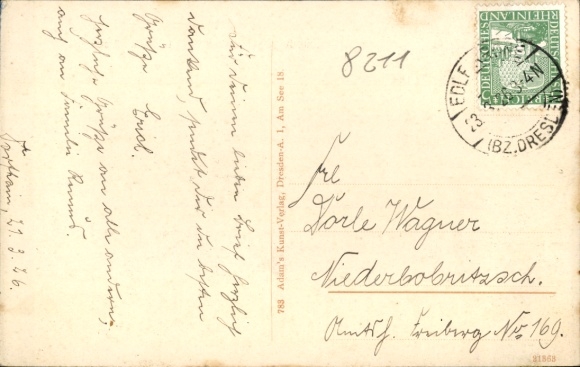 Für deinen lieben Brief herzlich
dankend, sendet dir die besten
Grüße Erich.
Herzliche Grüße an alle anderen,
auch an Familie
21.3.26.
8211
783 Adam's Kunst-Verlag, Dresden-A. 1, Am See 19.
DEUTSCHES REICH
RHEINLAND
EDLE
(BZ. DRESDEN)
Frl
Dorle Wagner
Niederbobritzsch.
Amtsh. Freiberg No 169.
21563